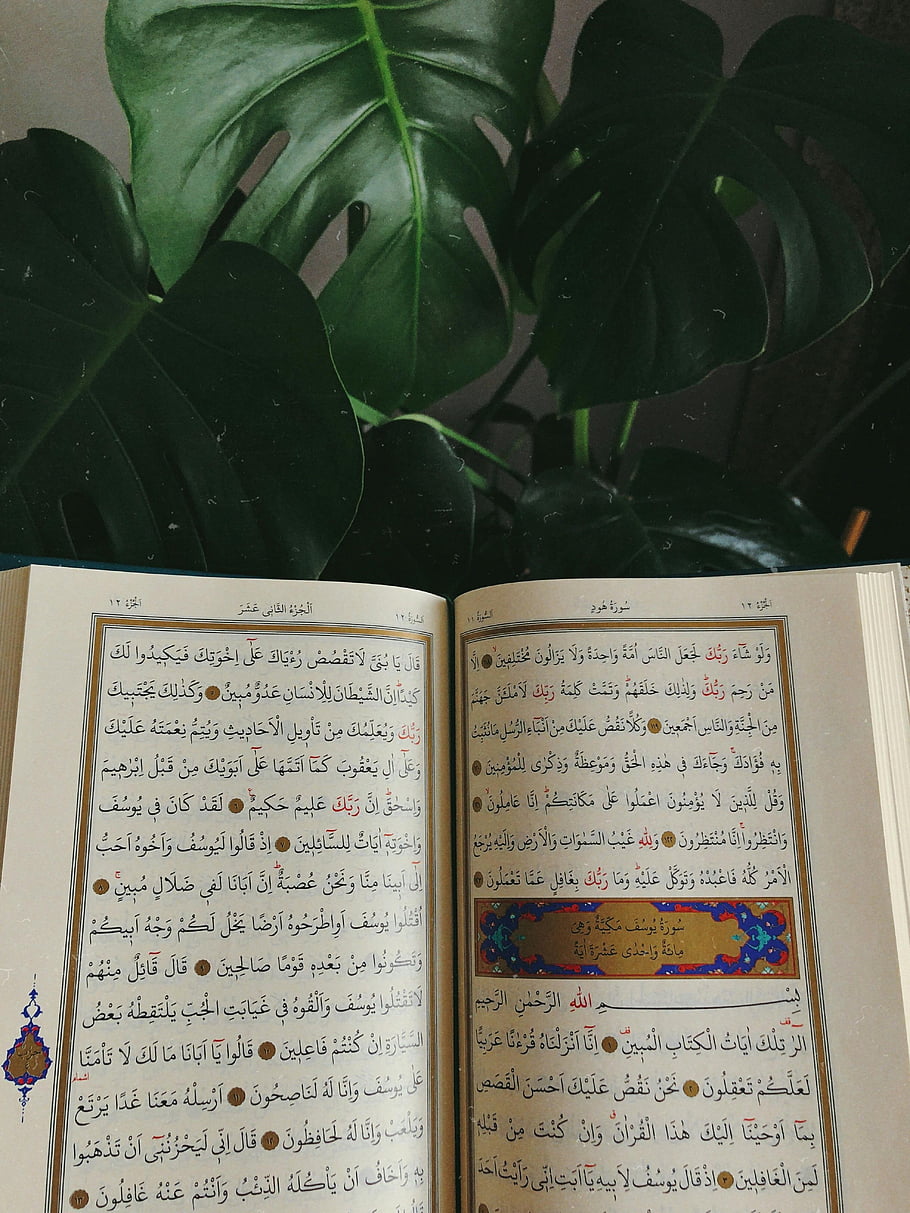 اَلْجُزْءُ ١٢
سُورَةُ هُودٍ
اَلسُّورَةُ ١١
وَلَوْ شَٓاءَ رَبُّكَ لَجَعَلَ النَّاسَ اُمَّةً وَاحِدَةً وَلَا يَزَالُونَ مُخْتَلِف۪ينَۙ ﴿١١٨﴾ اِلَّا
مَنْ رَحِمَ رَبُّكَۜ وَلِذٰلِكَ خَلَقَهُمْۜ وَتَمَّتْ كَلِمَةُ رَبِّكَ لَاَمْلَـَٔنَّ جَهَنَّمَ
مِنَ الْجِنَّةِ وَالنَّاسِ اَجْمَع۪ينَ ﴿١١٩﴾ وَكُلًّا نَقُصُّ عَلَيْكَ مِنْ اَنْبَٓاءِ الرُّسُلِ مَا نُثَبِّتُ
بِه۪ فُؤٰادَكَۚ وَجَٓاءَكَ ف۪ي هٰذِهِ الْحَقُّ وَمَوْعِظَةٌ وَذِكْرٰى لِلْمُؤْمِن۪ينَ
وَقُلْ لِلَّذ۪ينَ لَا يُؤْمِنُونَ اعْمَلُوا عَلٰى مَكَانَتِكُمْۜ اِنَّا عَامِلُونَۙ
وَانْتَظِرُواۚ اِنَّا مُنْتَظِرُونَ ﴿١٢٢﴾ وَلِلّٰهِ غَيْبُ السَّمٰوَاتِ وَالْاَرْضِ وَاِلَيْهِ يُرْجَعُ
الْاَمْرُ كُلُّهُ فَاعْبُدْهُ وَتَوَكَّلْ عَلَيْهِۜ وَمَا رَبُّكَ بِغَافِلٍ عَمَّا تَعْمَلُونَ
سُورَةُ يُوسُفَ مَكِّيَّةٌ وَهِيَ
مِائَةٌ وَاِحْدٰى عَشْرَةَ اٰيَةً
بِسْمِ اللّٰهِ الرَّحْمٰنِ الرَّح۪يمِ
الٓرٰ تِلْكَ اٰيَاتُ الْكِتَابِ الْمُب۪ينِ ﴿١﴾ اِنَّٓا اَنْزَلْنَاهُ قُرْءٰنًا عَرَبِيًّا
لَعَلَّكُمْ تَعْقِلُونَ ﴿٢﴾ نَحْنُ نَقُصُّ عَلَيْكَ اَحْسَنَ الْقَصَصِ
بِمَٓا اَوْحَيْنَٓا اِلَيْكَ هٰذَا الْقُرْاٰنَۗ وَاِنْ كُنْتَ مِنْ قَبْلِه۪
لَمِنَ الْغَافِل۪ينَ ﴿٣﴾ اِذْ قَالَ يُوسُفُ لِاَب۪يهِ يَٓا اَبَتِ اِنّ۪ي رَاَيْتُ اَحَدَ
اَلْجُزْءُ ١٢
اَلْجُزْءُ الثَّانِي عَشَرَ
اَلسُّورَةُ ١٢
قَالَ يَا بُنَيَّ لَا تَقْصُصْ رُءْيَاكَ عَلٰٓى اِخْوَتِكَ فَيَك۪يدُوا لَكَ
كَيْدًاۜ اِنَّ الشَّيْطَانَ لِلْاِنْسَانِ عَدُوٌّ مُب۪ينٌ ﴿٥﴾ وَكَذٰلِكَ يَجْتَب۪يكَ
رَبُّكَ وَيُعَلِّمُكَ مِنْ تَأْو۪يلِ الْاَحَاد۪يثِ وَيُتِمُّ نِعْمَتَهُ عَلَيْكَ
وَعَلٰٓى اٰلِ يَعْقُوبَ كَمَٓا اَتَمَّهَا عَلٰٓى اَبَوَيْكَ مِنْ قَبْلُ اِبْرٰه۪يمَ
وَاِسْحٰقَۜ اِنَّ رَبَّكَ عَل۪يمٌ حَك۪يمٌ۟ ﴿٦﴾ لَقَدْ كَانَ ف۪ي يُوسُفَ
وَاِخْوَتِه۪ٓ اٰيَاتٌ لِلسَّٓائِل۪ينَ ﴿٧﴾ اِذْ قَالُوا لَيُوسُفُ وَاَخُوهُ اَحَبُّ
اِلٰٓى اَب۪ينَا مِنَّا وَنَحْنُ عُصْبَةٌۜ اِنَّ اَبَانَا لَف۪ي ضَلَالٍ مُب۪ينٍۚ ﴿٨﴾
اُقْتُلُوا يُوسُفَ اَوِ اطْرَحُوهُ اَرْضًا يَخْلُ لَكُمْ وَجْهُ اَب۪يكُمْ
وَتَكُونُوا مِنْ بَعْدِه۪ قَوْمًا صَالِح۪ينَ ﴿٩﴾ قَالَ قَٓائِلٌ مِنْهُمْ
لَا تَقْتُلُوا يُوسُفَ وَاَلْقُوهُ ف۪ي غَيَابَتِ الْجُبِّ يَلْتَقِطْهُ بَعْضُ
السَّيَّارَةِ اِنْ كُنْتُمْ فَاعِل۪ينَ ﴿١٠﴾ قَالُوا يَٓا اَبَانَا مَا لَكَ لَا تَأْمَنَّا
اشمام
عَلٰى يُوسُفَ وَاِنَّا لَهُ لَنَاصِحُونَ ﴿١١﴾ اَرْسِلْهُ مَعَنَا غَدًا يَرْتَعْ
وَيَلْعَبْ وَاِنَّا لَهُ لَحَافِظُونَ ﴿١٢﴾ قَالَ اِنّ۪ي لَيَحْزُنُن۪ٓي اَنْ تَذْهَبُوا
بِه۪ وَاَخَافُ اَنْ يَأْكُلَهُ الذِّئْبُ وَاَنْتُمْ عَنْهُ غَافِلُونَ ﴿١٣﴾